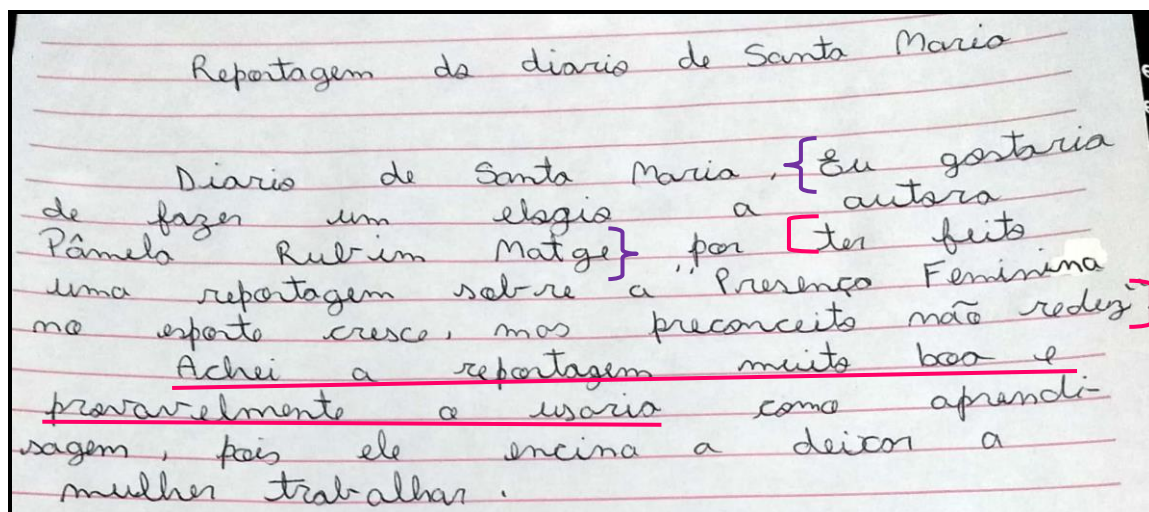 Reportagem do diario de Santa Maria
Diario de Santa Maria, Eu gostaria
de fazer um elogio a autora
Pâmela Rubim Matge, por ter feito
uma reportagem sobre a "Presença Feminina
no esporte cresce, mas preconceito não redez"
Achei a reportagem muito boa e
provavelmente a usaria como aprendi-
sagem, pois ele encina a deixar a
mulher trabalhar.